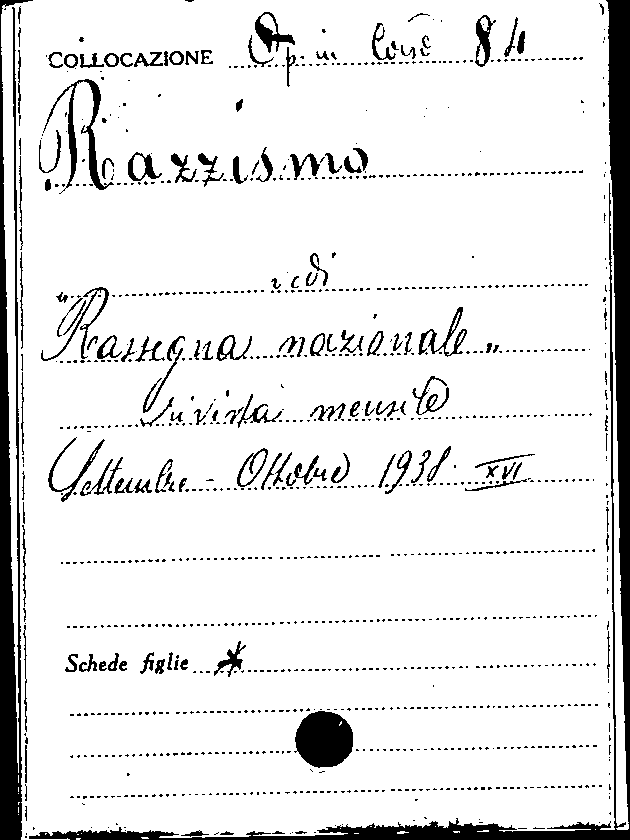 COLLOCAZIONE Op. in Cons 84
Razzismo
vedi
"Rassegna nazionale"
rivista mensile
Settembre - Ottobre 1938. XVI
Schede figlie *